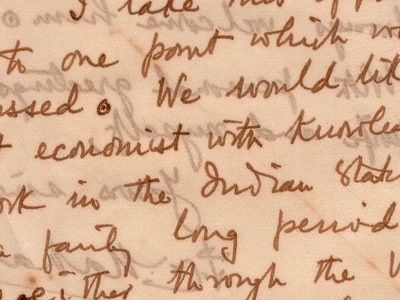 I take this
to one point which
ussed. We would
economist with knowle
ork in the Indian State
a fairly long period
either through the